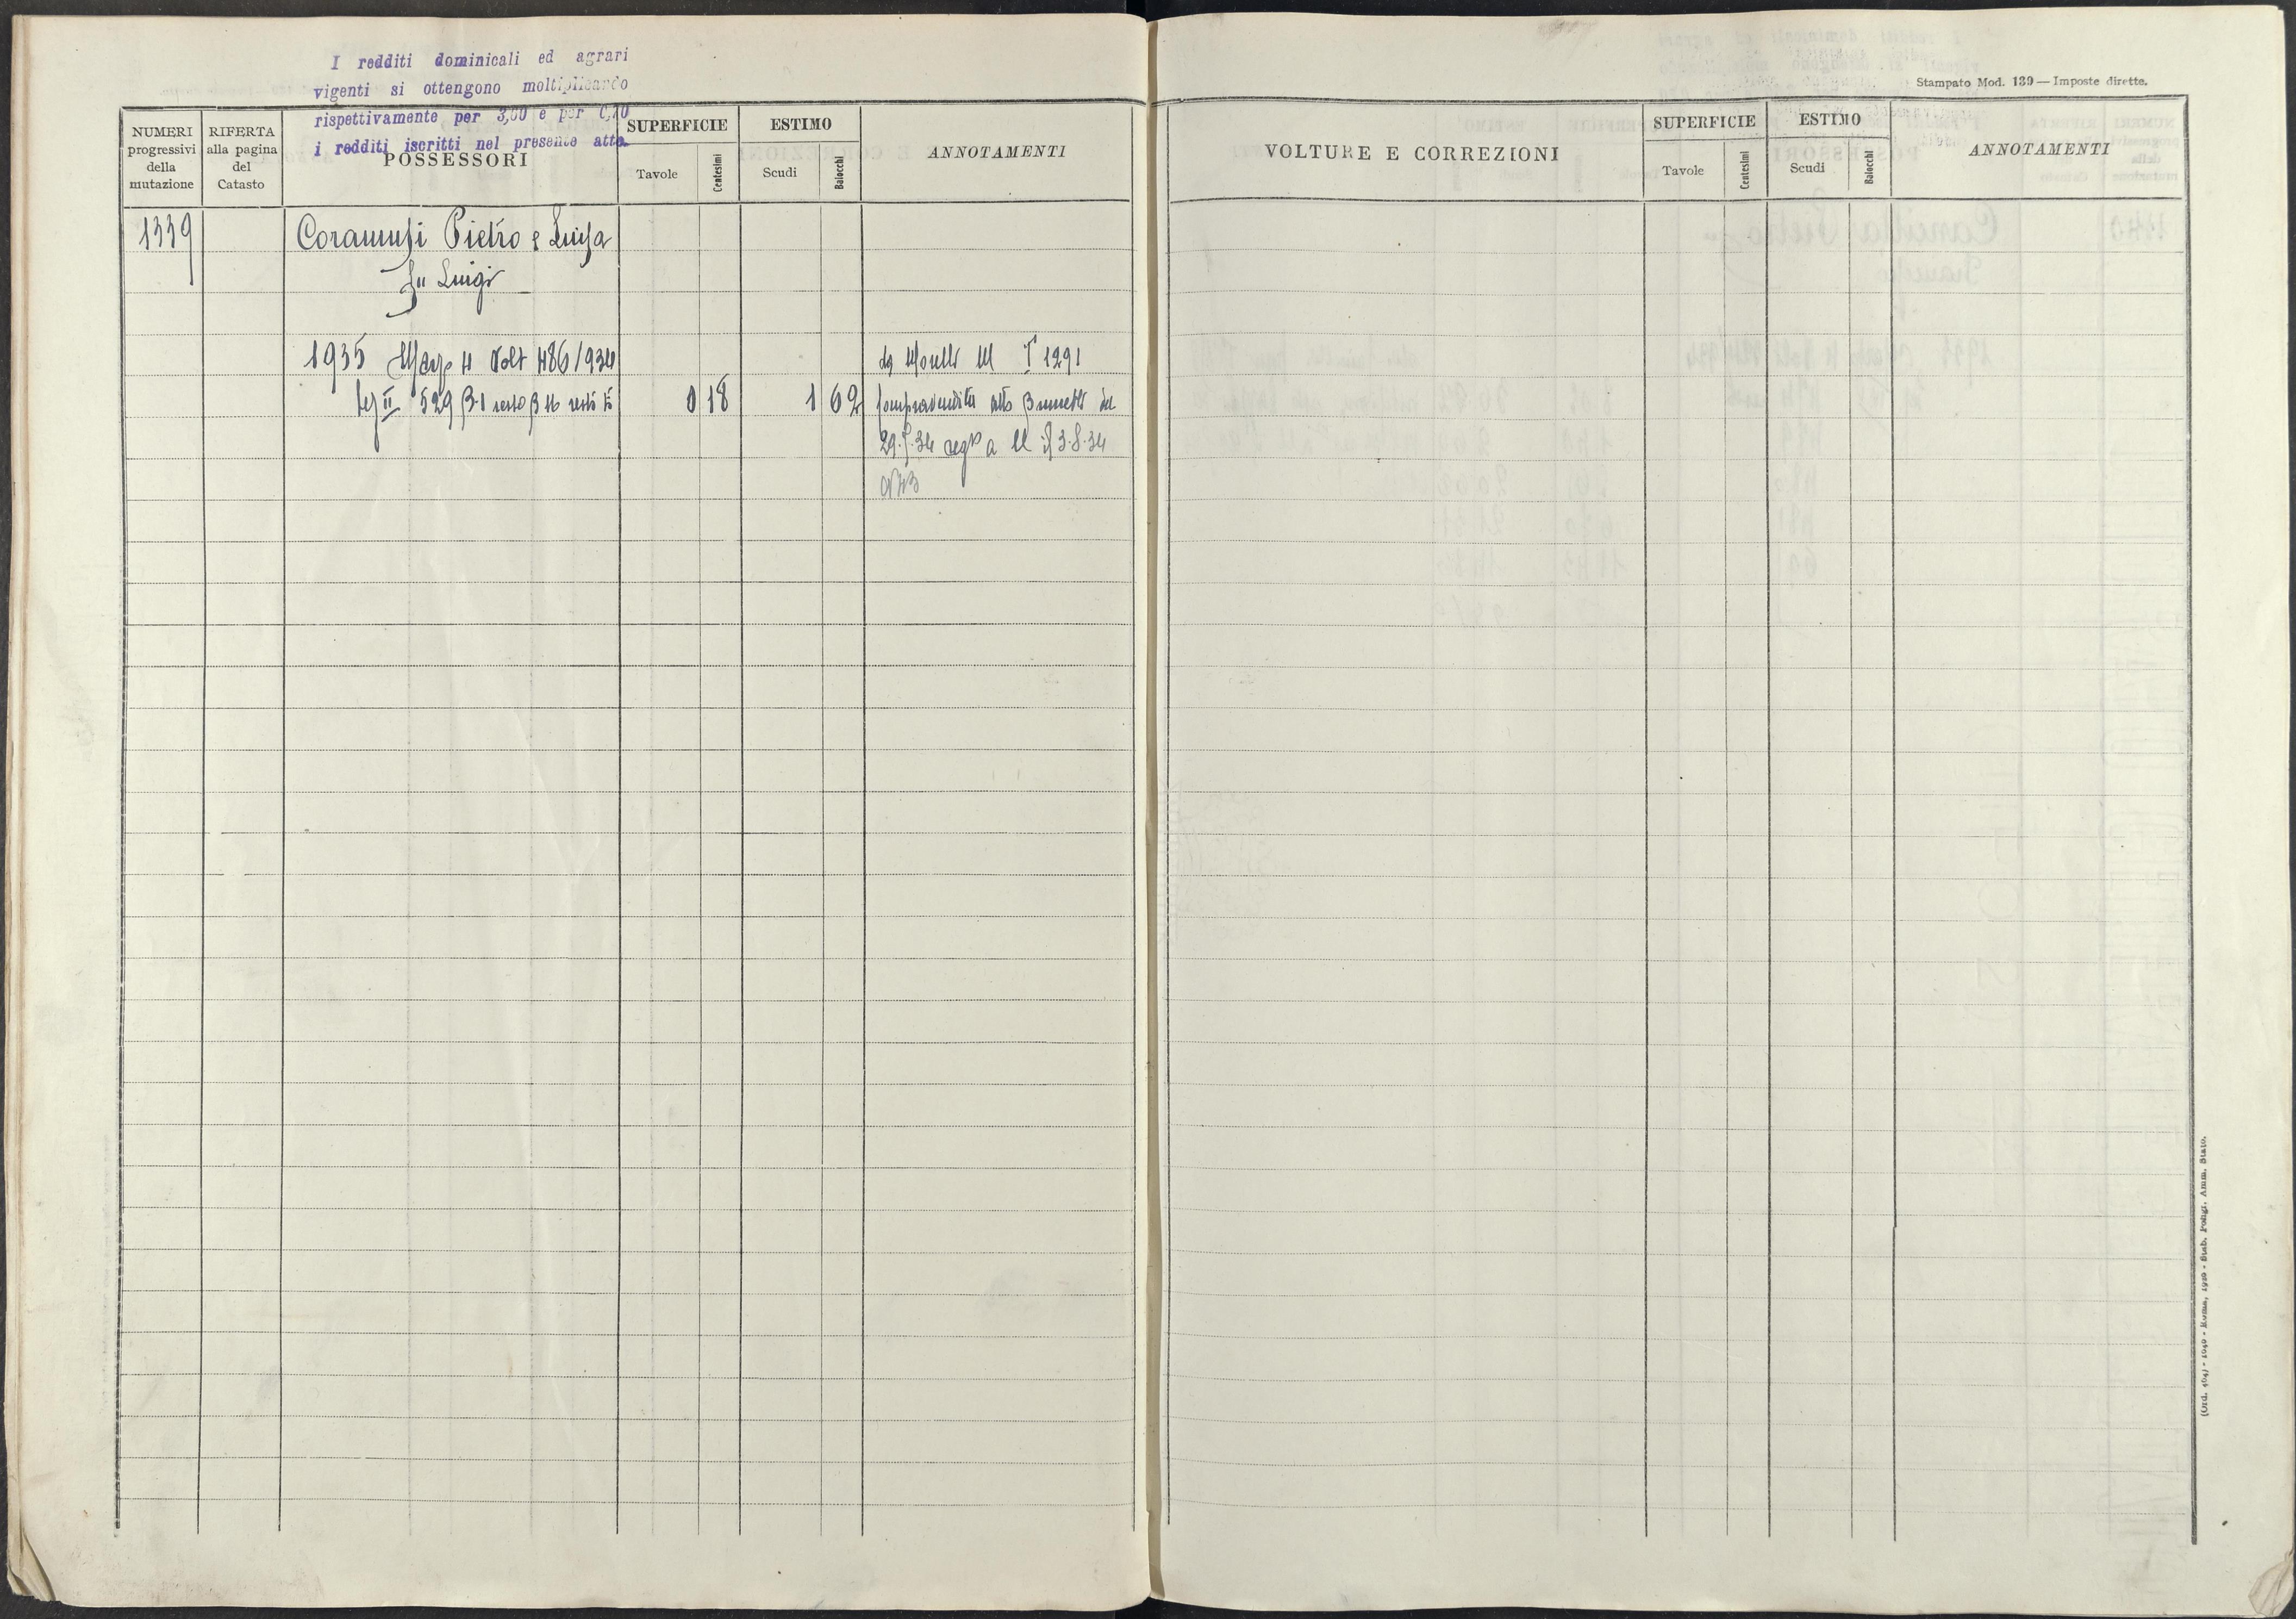 I redditi dominicali ed agrari
vigenti si ottengono moltiplicando
rispettivamente per 3,00 e per 0,10
i redditi iscritti nel presente atto.
NUMERI
progressivi
della
mutazione
RIFERTA
alla pagina
del
Catasto
POSSESSORI
SUPERFICIE
Tavole
Centesimi
ESTIMO
Scudi
Baiocchi
ANNOTAMENTI
1339
Coramusi Pietro e Luisa
fu Luigi
1935 Marzo 4 Volt 486/934
da T 1291
529 resto
0 18
1 62
compravendita atto
29. .34 a 3.8.34
Stampato Mod. 139 — Imposte dirette.
VOLTURE E CORREZIONI
SUPERFICIE
Tavole
Centesimi
ESTIMO
Scudi
Baiocchi
ANNOTAMENTI
Roma, Stab. Poligr. Amm. Stato.